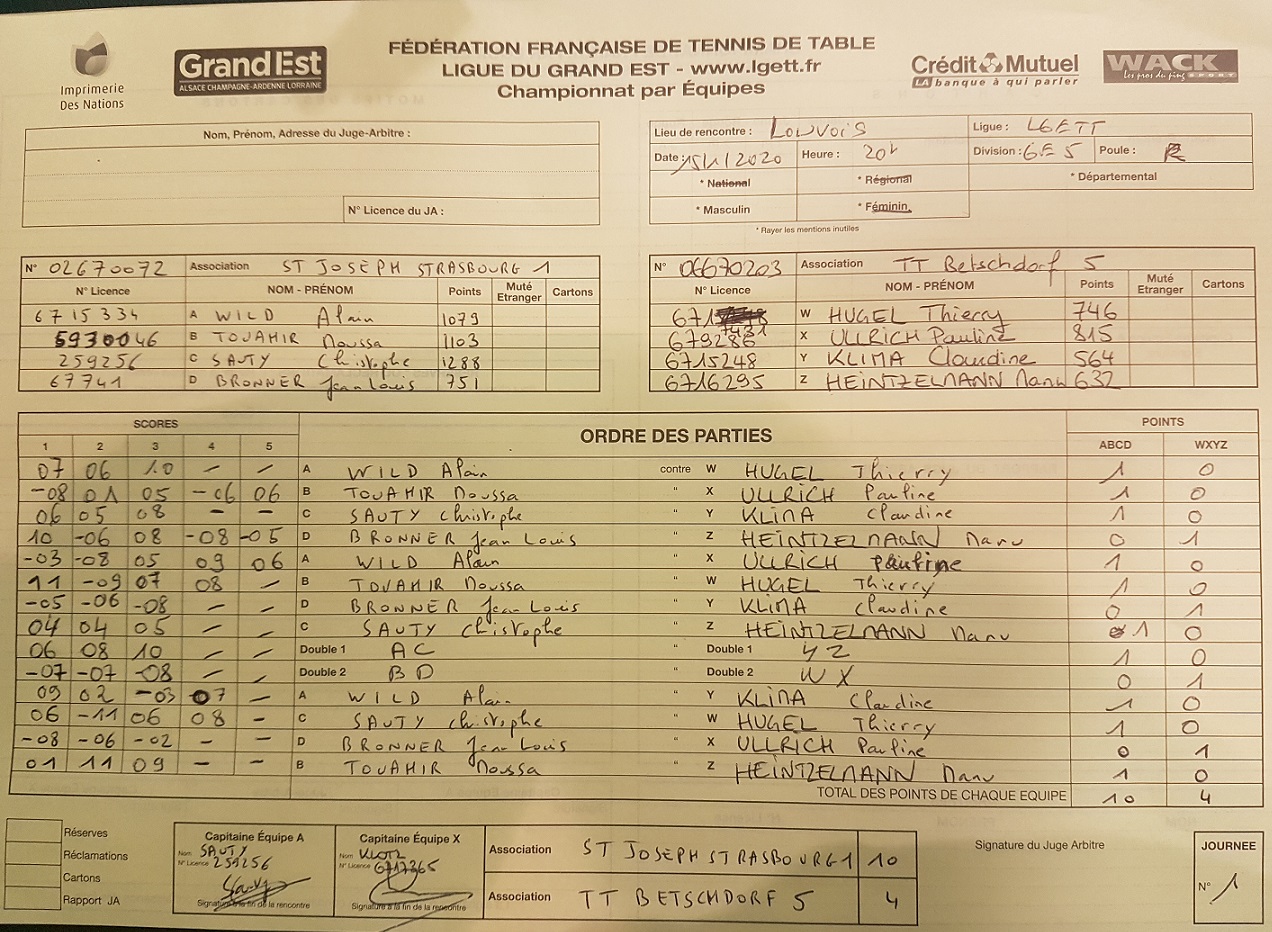 Imprimerie
Des Nations
Grand Est
ALSACE CHAMPAGNE-ARDENNE LORRAINE
FÉDÉRATION FRANÇAISE DE TENNIS DE TABLE
LIGUE DU GRAND EST - www.lgett.fr
Championnat par Équipes
Crédit Mutuel
LA banque à qui parler
WACK
Les pros du ping SPORT
Nom, Prénom, Adresse du Juge-Arbitre :
N° Licence du JA :
Lieu de rencontre : Louvois Ligue : LGETT
Date : 15/1/2020 Heure : 20h Division : GE 5 Poule :
* National * Régional * Départemental
* Masculin * Féminin
* Rayer les mentions inutiles
N° 02670072 Association ST JOSEPH STRASBOURG 1
N° Licence NOM - PRÉNOM Points Muté Etranger Cartons
6715334 A WILD Alain 1079
5930046 B TOUAHIR Moussa 1103
259256 C SAUTY Christophe 1288
67741 D BRONNER Jean Louis 751
N° 06670203 Association TT Betschdorf 5
N° Licence NOM - PRÉNOM Points Muté Etranger Cartons
671 7431 W HUGEL Thierry 746
679286 X ULLRICH Pauline 815
6715248 Y KLIMA Claudine 564
6716295 Z HEINTZELMANN Manu 632
SCORES ORDRE DES PARTIES POINTS
1 2 3 4 5 ABCD WXYZ
07 06 10 — — A WILD Alain contre W HUGEL Thierry 1 0
-08 01 05 -06 06 B TOUAHIR Moussa " X ULLRICH Pauline 1 0
06 05 08 — — C SAUTY Christophe " Y KLIMA Claudine 1 0
10 -06 08 -08 -05 D BRONNER Jean Louis " Z HEINTZELMANN Manu 0 1
-03 -08 05 09 06 A WILD Alain " X ULLRICH Pauline 1 0
11 -09 07 08 — B TOUAHIR Moussa " W HUGEL Thierry 1 0
-05 -06 -08 — — D BRONNER Jean Louis " Y KLIMA Claudine 0 1
04 04 05 — — C SAUTY Christophe " Z HEINTZELMANN Manu 1 0
06 08 10 — — Double 1 AC " Double 1 YZ 1 0
-07 -07 -08 — — Double 2 BD " Double 2 WX 0 1
09 02 -03 07 — A WILD Alain " Y KLIMA Claudine 1 0
06 -11 06 08 — C SAUTY Christophe " W HUGEL Thierry 1 0
-08 -06 -02 — — D BRONNER Jean Louis " X ULLRICH Pauline 0 1
01 11 09 — — B TOUAHIR Moussa " Z HEINTZELMANN Manu 1 0
TOTAL DES POINTS DE CHAQUE EQUIPE 10 4
Réserves
Réclamations
Cartons
Rapport JA
Capitaine Équipe A
Nom SAUTY
N° Licence 259256
Signature à la fin de la rencontre
Capitaine Équipe X
Nom KLOTZ
N° Licence
Signature à la fin de la rencontre
Association ST JOSEPH STRASBOURG 1 10
Association TT BETSCHDORF 5 4
Signature du Juge Arbitre
JOURNEE
N° 1